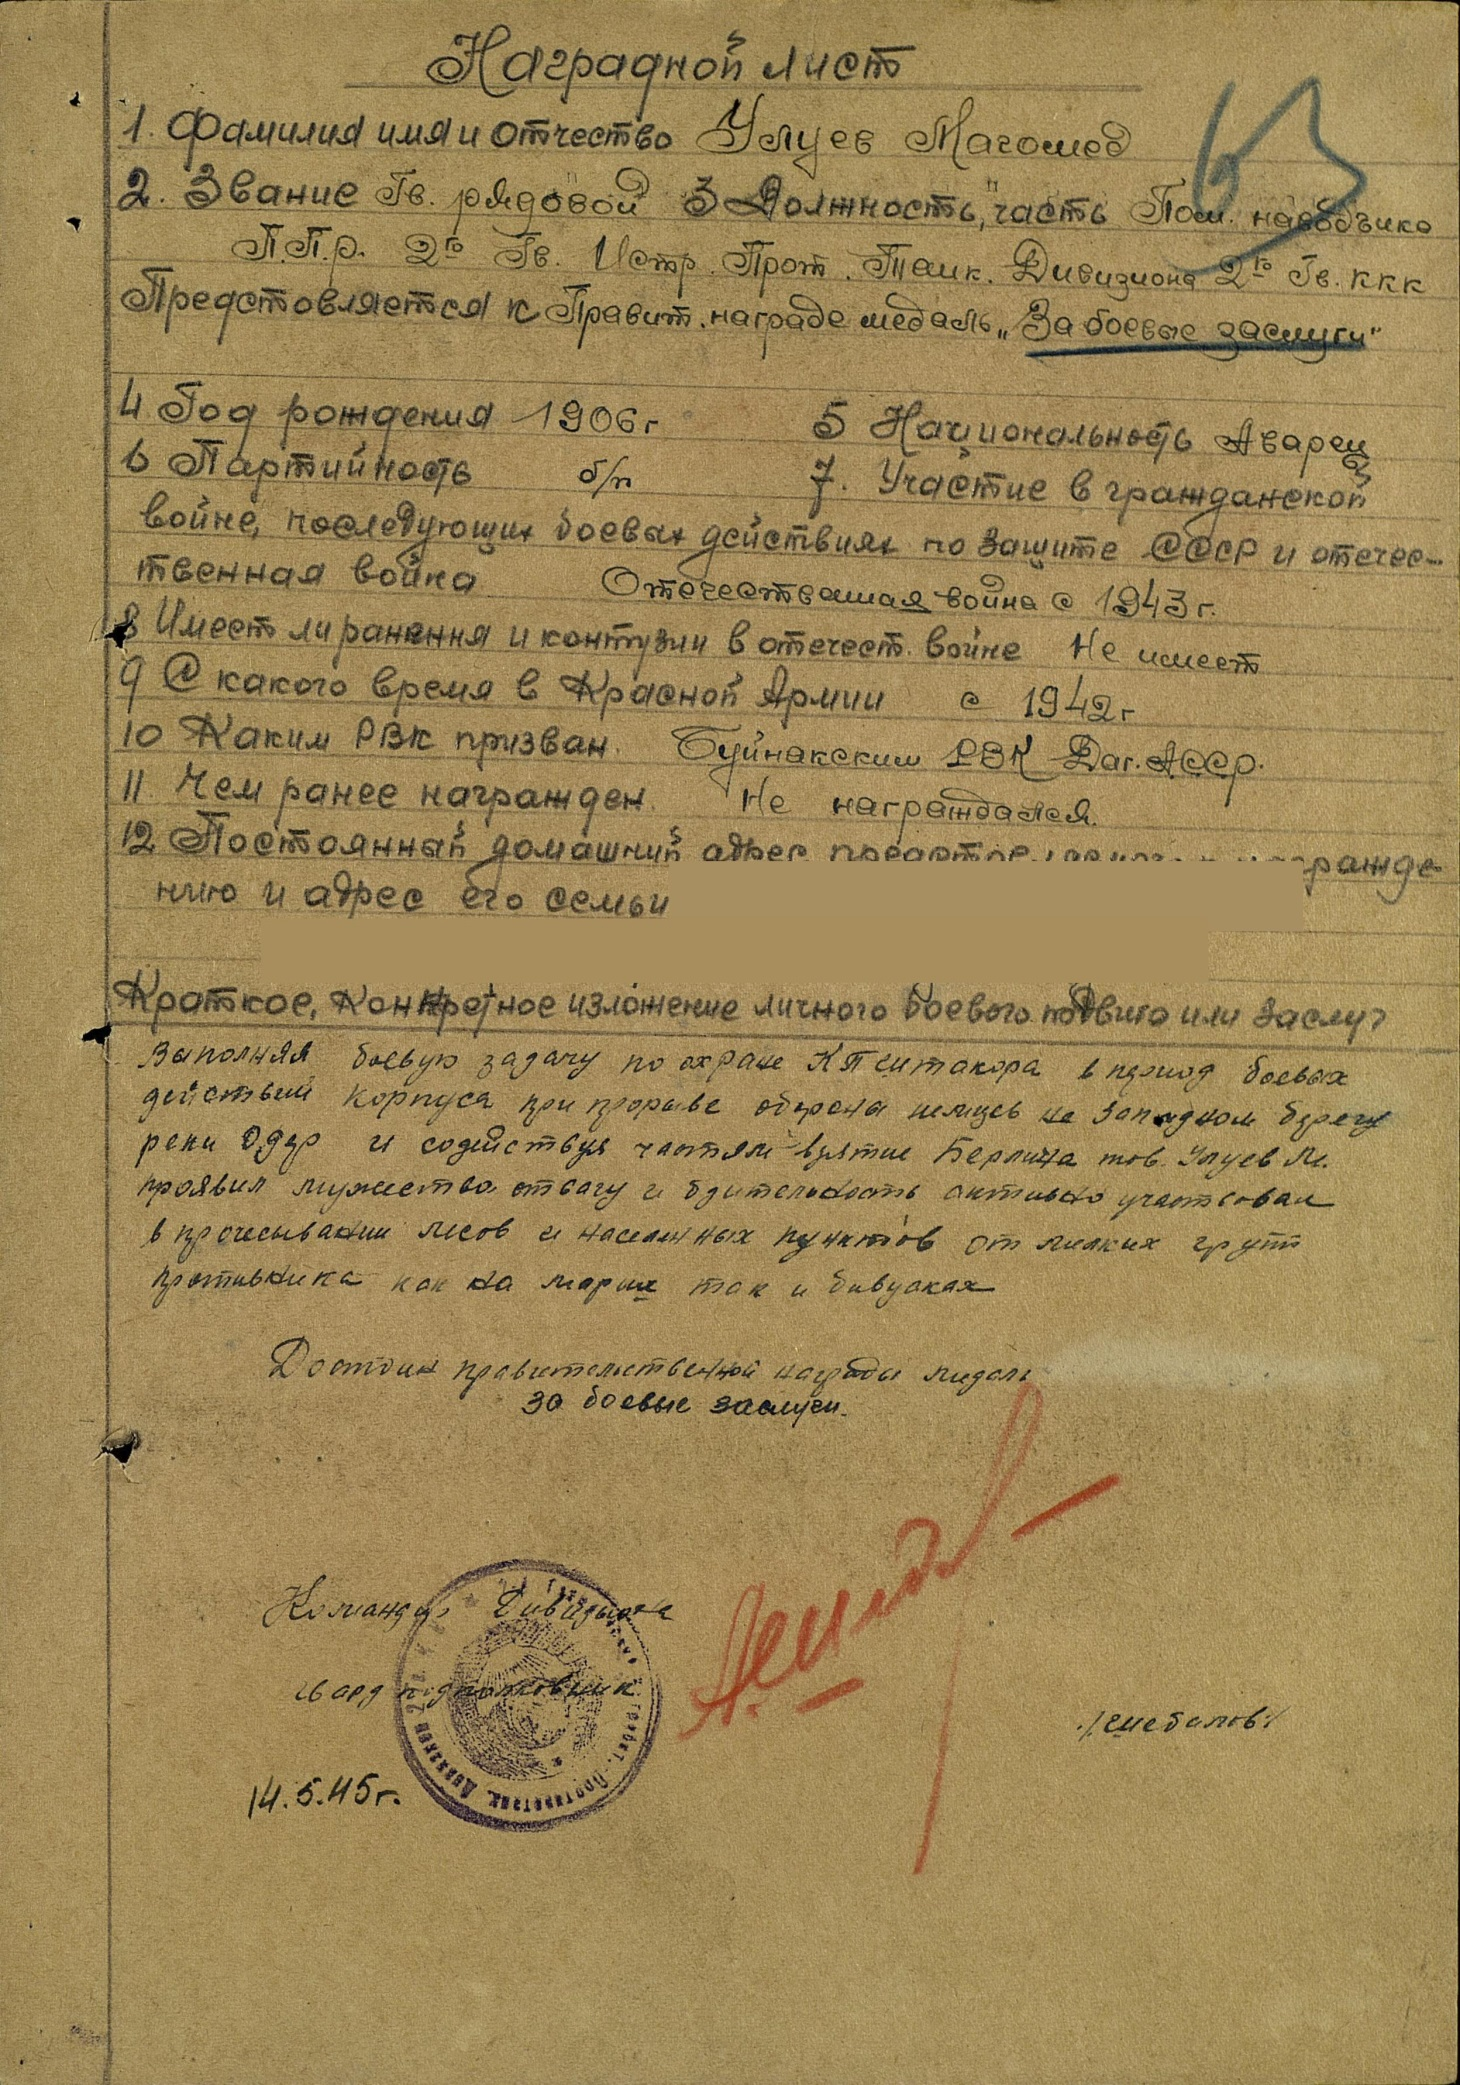 Наградной лист
1. Фамилия имя и отчество Улуев Магомед
2. Звание Гв. рядовой 3 Должность, часть Пом. наводчика
П.Т.р. 2го Гв. Истр. Прот. Танк. Дивизиона 2го Гв. ККК
Предстовляется к Правит. награде медаль „За боевые заслуги"
4 Год рождения 1906г 5 Национальность Аварец
6 Партийность б/п 7. Участие в гражданской
войне, последующих боевых действиях по защите СССР и отечес-
твенная война Отечественная война с 1943г.
8 Имеет ли ранения и контузии в отечест. войне Не имеет
9 С какого время в Красной Армии с 1942г
10 Каким РВК призван. Буйнакским РВК Даг. АССР.
11 Чем ранее награжден. Не награждался.
12 Постоянный домашний адрес
нию и адрес его семьи
Краткое, Конкретное изложение личного боевого подвига или заслуг
Выполняя боевую задачу по охране КП штакора в период боевых
действий корпуса при прорыве обороны немцев на западном берегу
реки Одер и содействуя частям взятие Берлина тов. Улуев М.
проявил мужество отвагу и бдительность активно участвовал
в прочесывании лесов и населенных пунктов от мелких групп
противника как на марше так и бивуаках
Достоин правительственной награды медаль
За боевые заслуги.
Командир Дивизиона
гвард подполковник
14.5.45г.